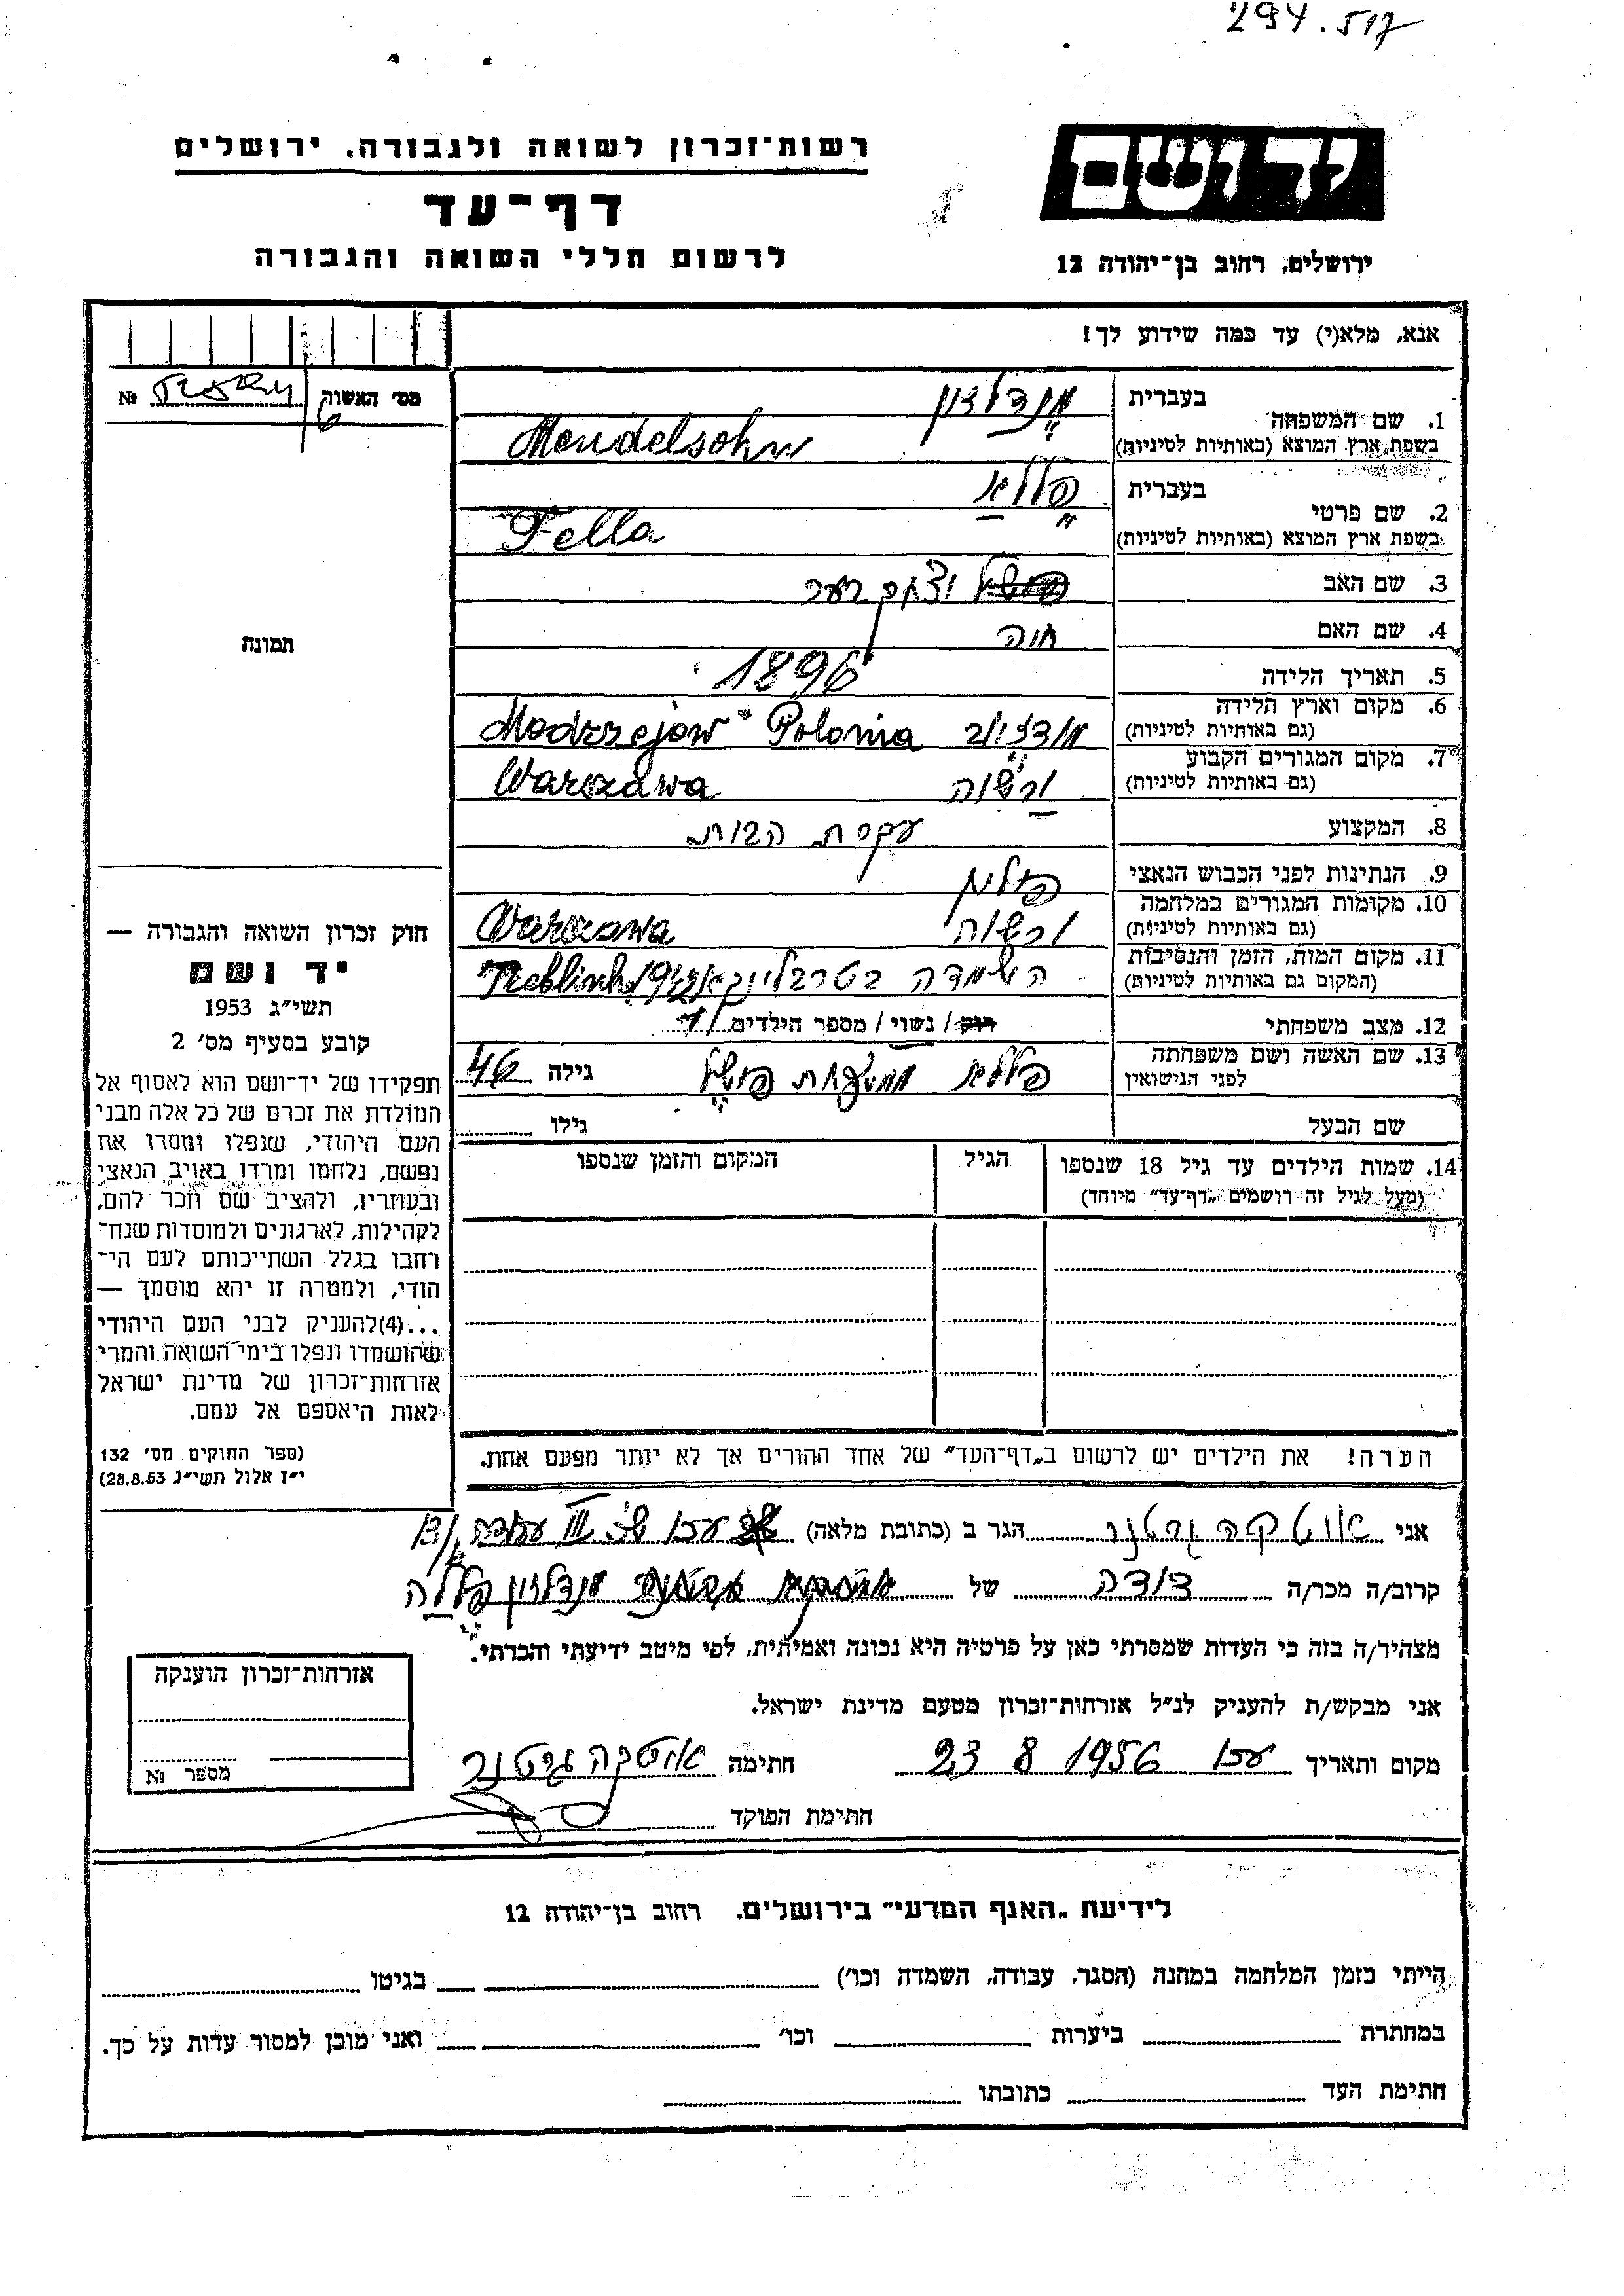 294.517
רשות־זכרון לשואה ולגבורה, ירושלים
דף־עד
לרשום חללי השואה והגבורה
יד ושם
ירושלים, רחוב בן־יהודה 12
אנא, מלא(י) עד כמה שידוע לך!
מס' האשוה № 
1. שם המשפחה בעברית מנדלזון
בשפת ארץ המוצא (באותיות לטיניות) Mendelsohn
2. שם פרטי בעברית פללא
בשפת ארץ המוצא (באותיות לטיניות) Fella
3. שם האב יצחק בער
4. שם האם חוה
5. תאריך הלידה 1896
6. מקום וארץ הלידה (גם באותיות לטיניות) Modrzejow - Polonia
7. מקום המגורים הקבוע (גם באותיות לטיניות) ורשוה Warszawa
8. המקצוע עקרת הבית
9. הנתינות לפני הכבוש הנאצי פולין
10. מקומות המגורים במלחמה (גם באותיות לטיניות) ורשוה Warszawa
11. מקום המות, הזמן והנסיבות (המקום גם באותיות לטיניות) השמדה בטרבלינקא
12. מצב משפחתי רוק / נשוי / מספר הילדים
13. שם האשה ושם משפחתה לפני הנישואין פללא ממשפחת גילה 46
שם הבעל גילו
14. שמות הילדים עד גיל 18 שנספו (מעל לגיל זה רושמים „דף־עד" מיוחד) הגיל המקום והזמן שנספו
הערה! את הילדים יש לרשום ב„דף־העד" של אחד ההורים אך לא יותר מפעם אחת.
תמונה
חוק זכרון השואה והגבורה —
יד ושם
תשי״ג 1953
קובע בסעיף מס' 2
תפקידו של יד־ושם הוא לאסוף אל
המולדת את זכרם של כל אלה מבני
העם היהודי, שנפלו ומסרו את
נפשם, נלחמו ומרדו באויב הנאצי
ובעוזריו, ולהציב שם וזכר להם,
לקהילות, לארגונים ולמוסדות שנח־
רבו בגלל השתייכותם לעם הי־
הודי, ולמטרה זו יהא מוסמך —
...(4)להעניק לבני העם היהודי
שהושמדו ונפלו בימי השואה והמרי
אזרחות־זכרון של מדינת ישראל
לאות היאספם אל עמם.
(ספר החוקים מס' 132
י״ז אלול תשי״ג 28.8.53)
אני הגר ב (כתובת מלאה) עכו
קרוב/ה מכר/ה דודה של מנדלזון פללה
מצהיר/ה בזה כי העדות שמסרתי כאן על פרטיה היא נכונה ואמיתית, לפי מיטב ידיעתי והכרתי.
אני מבקש/ת להעניק לנ״ל אזרחות־זכרון מטעם מדינת ישראל.
מקום ותאריך עכו 23 8 1956 חתימה
חתימת הפוקד
אזרחות־זכרון הוענקה
מספר №
לידיעת „האגף המדעי" בירושלים, רחוב בן־יהודה 12
הייתי בזמן המלחמה במחנה (הסגר, עבודה, השמדה וכו') בגיטו
במחתרת ביערות וכו' ואני מוכן למסור עדות על כך.
חתימת העד כתובתו